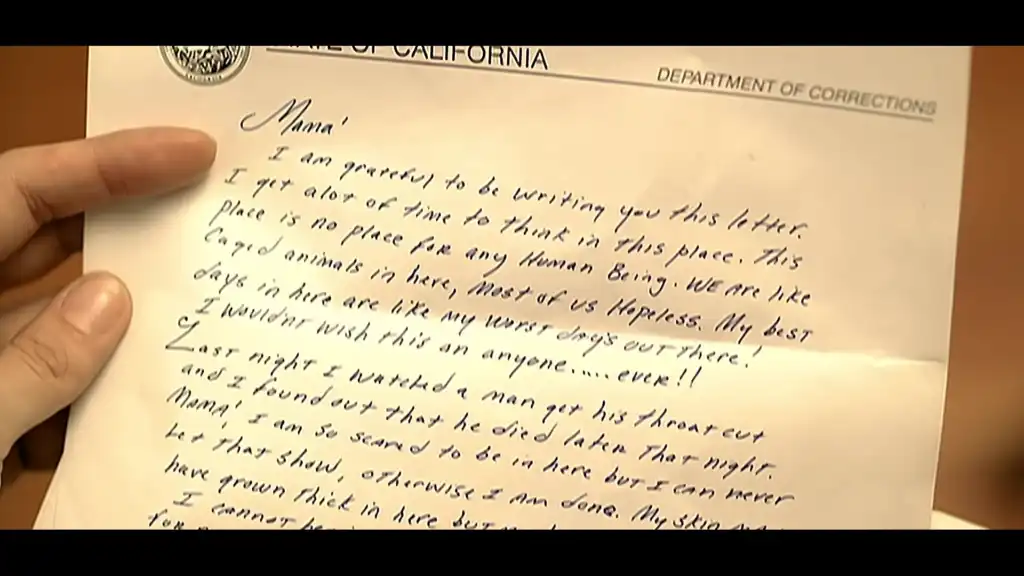 STATE OF CALIFORNIA
DEPARTMENT OF CORRECTIONS
CALIFORNIA
Mama'
I am grateful to be writing you this letter.
I get alot of time to think in this place. This
place is no place for any Human Being. WE are like
Caged animals in here, Most of us Hopeless. My best
days in here are like my worst days out there!
I wouldnt wish this an anyone.....ever!!
Last night I watched a man get his throat cut
and I found out that he died later that night.
MaMA! I am so scared to be in here but I can never
Let that show, otherwise I am done. My skin
have grown thick in here but
I cannot
for